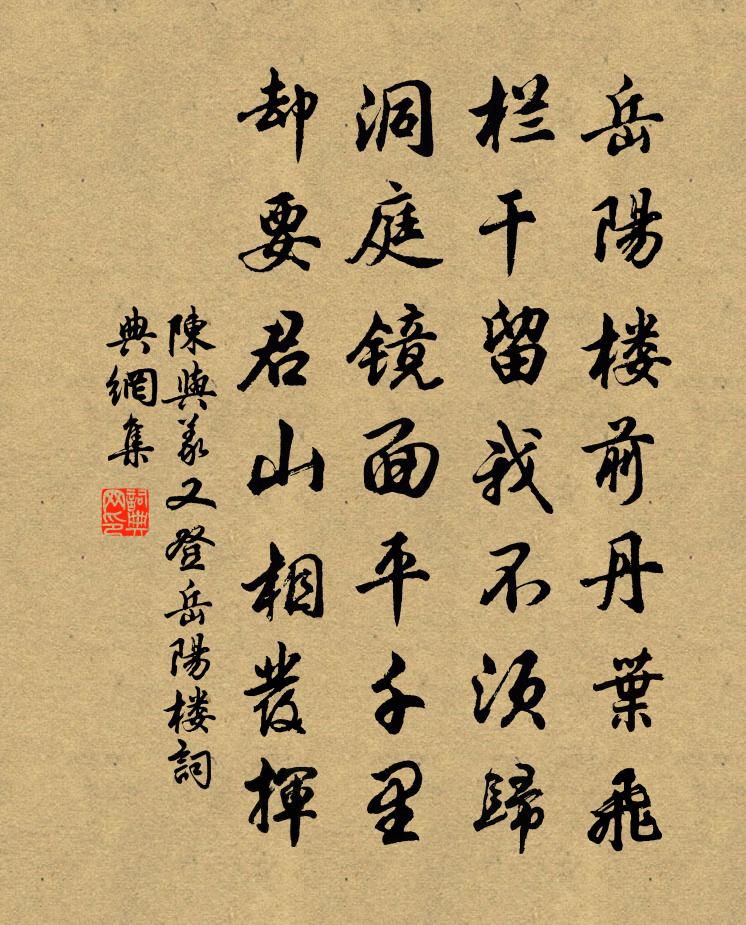 岳陽楼前丹葉飛
栏干留我不須歸
洞庭镜面平千里
却要君山相發揮
陳與義又登岳陽楼詞
典網集
詞典网印